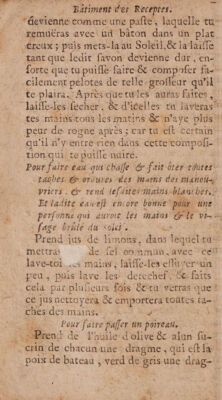 Bâtiment des Receptes.
devienne comme une paste, laquelle tu
remuëras avec un bâton dans un plat
creux; puis mets-la au Soleil, & la laisse
tant que ledit savon devienne dur, en-
sorte que tu puisse faire & composer fa-
cilement pelotes de telle grosseur qu'il
te plaira. Après que tu les auras faites,
laisse-les secher, & d'icelles tu laveras
tes mains tous les matins & n'aye plus
peur de rogne après; car tu est certain
qu'il n'y entre rien dans cette composi-
tion qui te puisse nuire.
Pour faire eau qui chasse & fait ôter toutes
taches & ordures des mains des manou-
vriers, & rend lesdites mains blanches.
Et ladite eau est encore bonne pour une
personne qui auroit les mains & le vi-
sage brûlé du soleil.
Prend jus de limons, dans lequel tu
mettras de sel commun, avec ce
lave-toi mains, laisse-les essuyer un
peu, puis lave les derechef, & faits
cela par plusieurs fois & tu verras que
ce jus nettoyera & emportera toutes ta-
ches des mains.
Pour faire passer un poireau.
Prend de l'huile d'olive & alun su-
crin de chacun une dragme, qui est la
poix de bateau, verd de gris une drag-